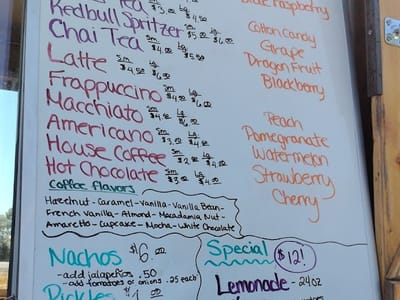 Tea Sm $3.00 Lg $4.50
Redbull Spritzer Sm $5.00 Lg $6.00
Chai Tea Sm $4.00 Lg $5.00
Latte Sm $4.50 Lg $6.00
Frappuccino Sm $4.50 Lg $6.00
Macchiato Sm $4.00 Lg $6.00
Americano Sm $3.00 Lg $4.00
House Coffee Sm $2.00 Lg $4.00
Hot Chocolate Sm $3.00 Lg $4.00
Coffee Flavors
Hazelnut - Caramel - Vanilla - Vanilla Bean -
French Vanilla - Almond - Macadamia Nut -
Amaretto - Cupcake - Mocha - White Chocolate
Nachos $6.00
- add jalapeños .50
- add tomatoes or onions .25 each
Pickles
Blue Raspberry
Cotton Candy
Grape
Dragon Fruit
Blackberry
Peach
Pomegranate
Watermelon
Strawberry
Cherry
Special $12!
Lemonade - 24oz